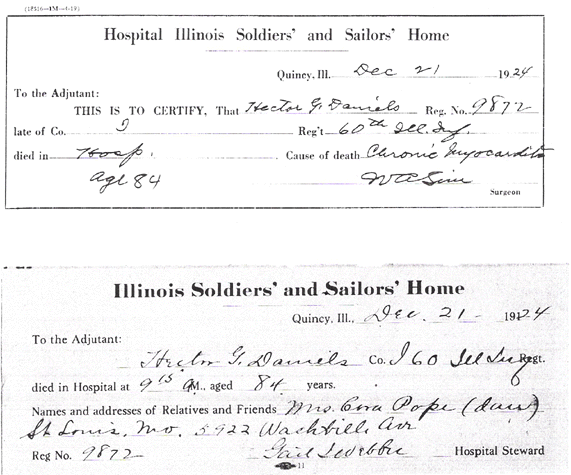 (18516—1M—4-19)
Hospital Illinois Soldiers' and Sailors' Home
Quincy, Ill. Dec 21 1924
To the Adjutant:
THIS IS TO CERTIFY, That Hector G. Daniels Reg. No. 9872
late of Co. I Reg't 60th Ill. Inf
died in Hosp. Cause of death Chronic Myocarditis
age 84
Surgeon
Illinois Soldiers' and Sailors' Home
Quincy, Ill., Dec. 21 - 1924
To the Adjutant:
Hector G. Daniels Co. I 60 Ill Inf Regt.
died in Hospital at 9 15 A M., aged 84 years.
Names and addresses of Relatives and Friends Mrs. Cora Pope (dau)
St Louis, Mo. 5922
Reg No. 9872 Hospital Steward
11